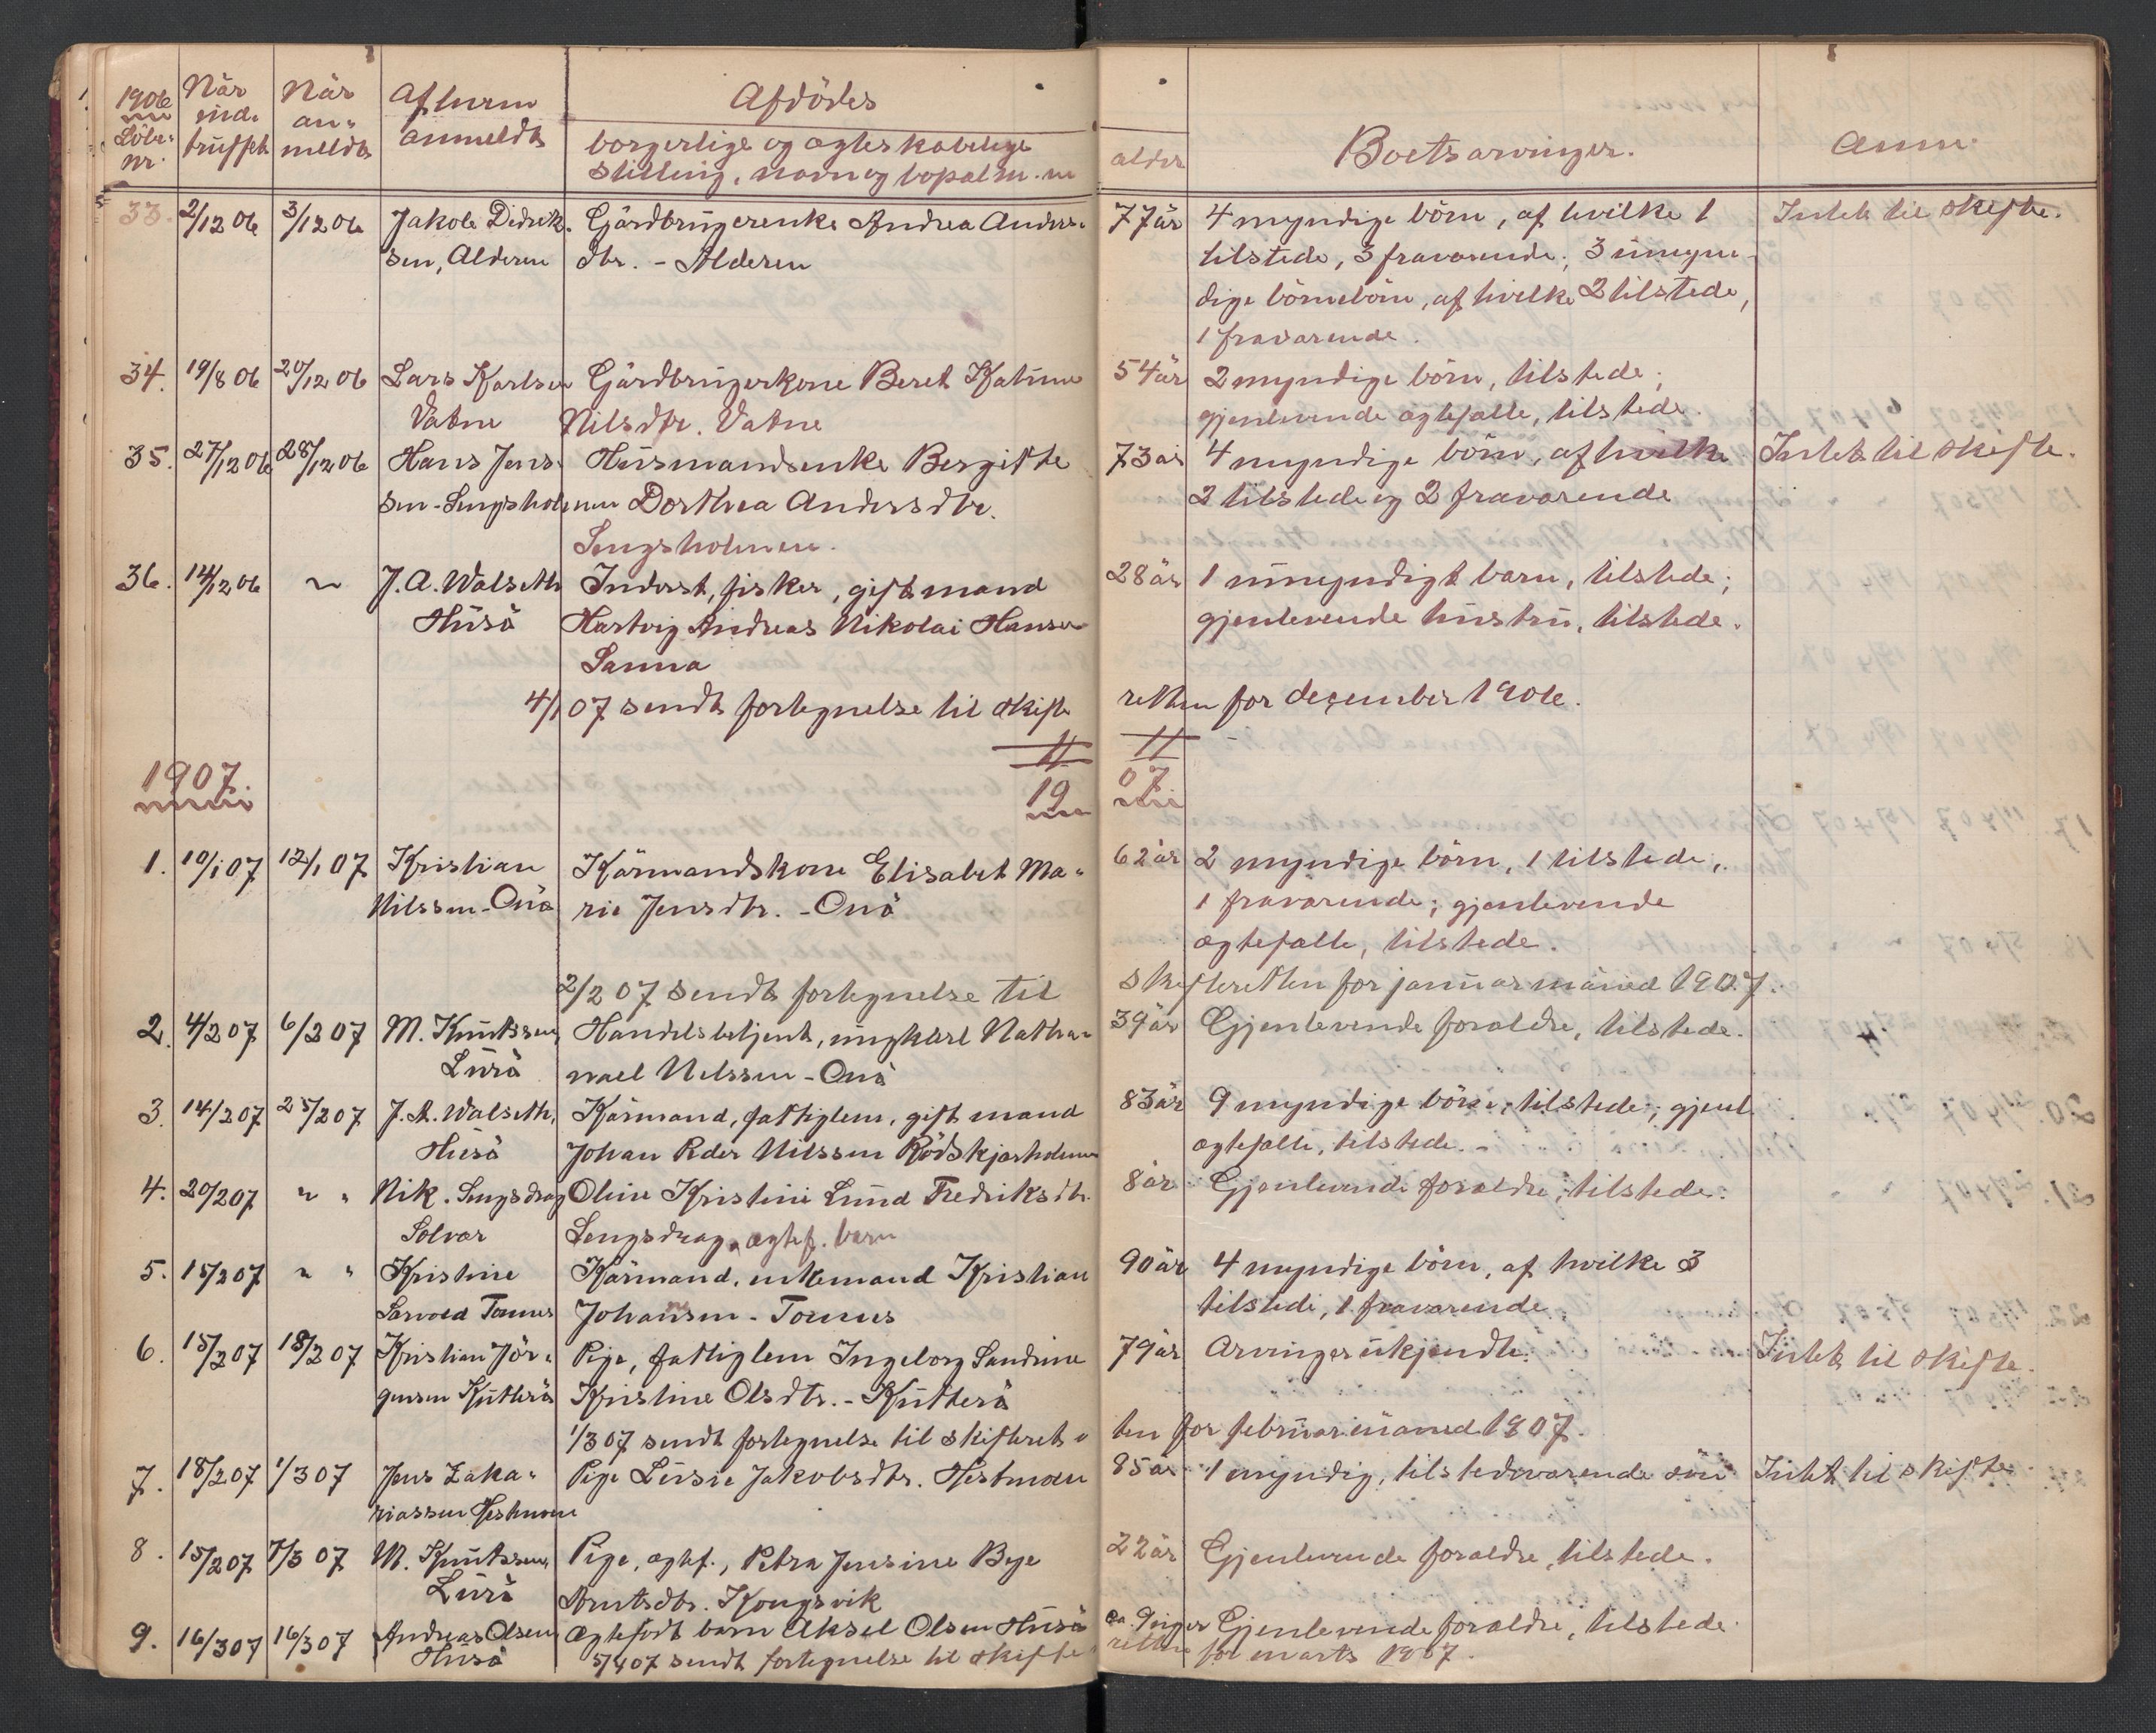 1906 Når Når Af hvem Afdödes
Löbe- ind- an- anmeldt borgerlige og ægteskabelige alder Boets arvinger. Anm.
nr. truffet meldt stilling, navn og bopæl m. m
33. 2/12 06 3/12 06 Jakob Didrik- Gårdbrugerenke Andrea Anders- 77 år 4 myndige börn, af hvilke 1 Intet til skifte.
sen, Alderen dtr. - Alderen tilstede, 3 fraværende; 3 umyn-
dige börnebörn, af hvilke 2 tilstede,
1 fraværende.
34. 19/8 06 20/12 06 Lars Karlsen Gårdbrugerkone Beret Katrine 54 år 2 myndige börn, tilstede;
Vatne Nilsdtr. Vatne gjenlevende ægtefælle, tilstede.
35. 27/12 06 28/12 06 Hans Jens- Husmandsenke Bergitte 73 år 4 myndige börn, af hvilke Intet til skifte.
sen - Sengsholmen Dorthea Andersdtr. 2 tilstede og 2 fraværende
Sengsholmen.
36. 14/12 06 " J. A. Walseth Inderst, fisker, gift mand 28 år 1 umyndigt barn, tilstede;
Huså Hartvig Andreas Nikolai Hansen gjenlevende hustru, tilstede.
Sanna
4/1 07 sendt fortegnelse til skifte retten for december 1906.
1907. 19 07
1. 10/1 07 12/1 07 Kristian Kårmandskone Elisabet Ma- 62 år 2 myndige börn, 1 tilstede,
Nilssen - Onö rie Jensdtr. - Onö 1 fraværende; gjenlevende
ægtefælle, tilstede.
2/2 07 sendt fortegnelse til skifteretten for januar måned 1907.
2. 4/2 07 6/2 07 M. Knutssen, Handelsbetjent, ungkarl Natha- 39 år Gjenlevende foraldre, tilstede.
Lurö nael Nilssen - Onö
3. 14/2 07 25/2 07 J. A. Walseth, Kårmand, fattiglem, gift mand 83 år 9 myndige börn, tilstede; gjenl.
Huså Johan Peder Nilssen Rödskjærholmen ægtefælle, tilstede. -
4. 20/2 07 " " Nik. Sengsdrag Oline Kristine Lund Fredriksdtr. 8 år Gjenlevende foraldre, tilstede.
Solvær Sengsdrag, ægtef. barn
5. 15/2 07 " " Kristine Kårmand, enkemand Kristian 90 år 4 myndige börn, af hvilke 3
Sørvold Tonnes Johansen - Tonnes tilstede, 1 fraværende.
6. 15/2 07 18/2 07 Kristian Jör- Pige, fattiglem Ingeborg Sandrine 79 år Arvinger ukjendte. Intet til skifte.
gensen Kutterö Kristine Olsdtr. - Kutterö
1/3 07 sendt fortegnelse til skifteret- ten for februar måned 1907.
7. 18/2 07 1/3 07 Jens Zaka- Pige Lusie Jakobsdtr. Hestmon 85 år 1 myndig, tilstedeværende sön Intet til skifte.
riassen Hestmon
8. 15/2 07 7/3 07 M. Knutssen, Pige, ægtef., Petra Jensine Beye 22 år Gjenlevende foraldre, tilstede.
Lurö Arntsdtr. Kongsvik
9. 16/3 07 16/3 07 Andreas Olsen, Ægtefödt barn Aksel Olsen Huså ca. 9 Gjenlevende foraldre, tilstede.
Huså 5/4 07 sendt fortegnelse til skifte retten for marts 1907.